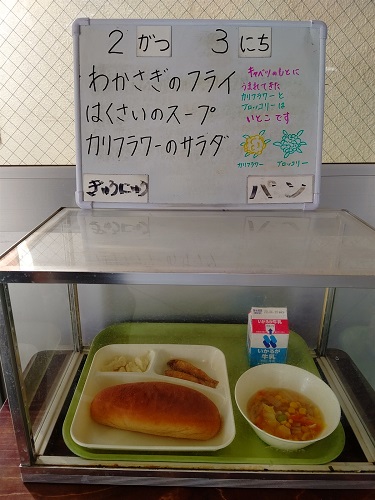 2 がつ 3 にち
わかさぎのフライ
はくさいのスープ
カリフラワーのサラダ
キャベツのもとに
うまれてきた
カリフラワーと
ブロッコリーは
いとこです
カリフラワー ブロッコリー
ぎゅうにゅう パン
牛乳